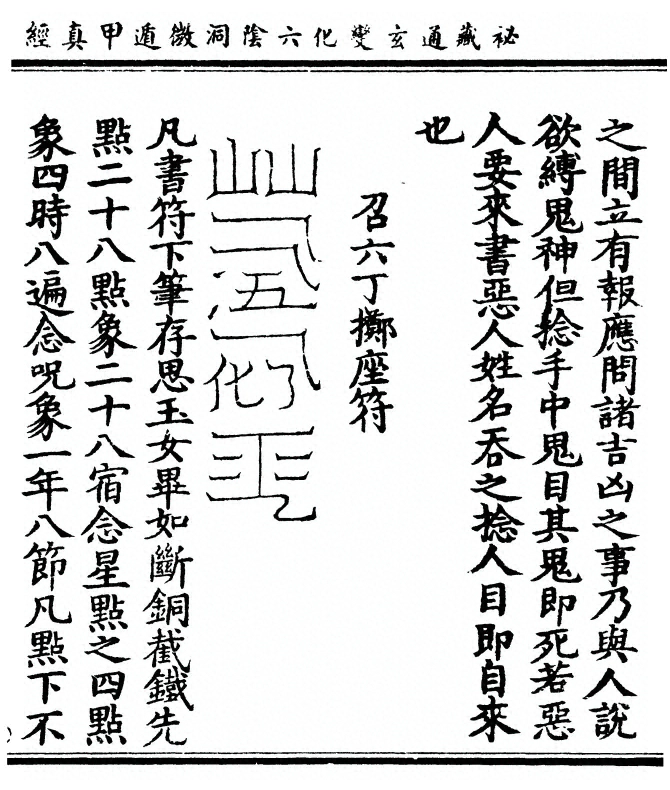 祕藏通玄變化六陰洞微遁甲真經
之間立有報應問諸吉凶之事乃與人說
欲縛鬼神但捻手中鬼目其鬼即死若惡
人要來書惡人姓名吞之捻人目即自來
也
召六丁擲座符
凡書符下筆存思玉女畢如斷銅截鐵先
點二十八點象二十八宿念星點之四點
象四時八遍念呪象一年八節凡點下不